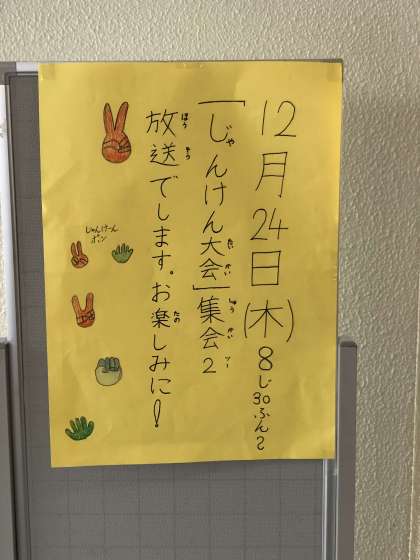 12月24日(木)8じ30ふん~
「じゃんけん大会」集会2
放送でします。お楽しみに!
じゃんけーん
ポン